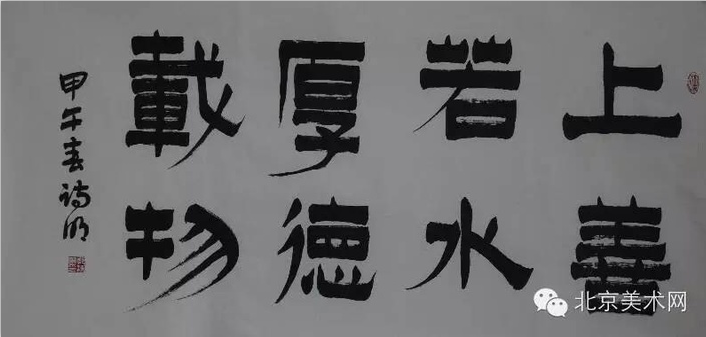 上善
若水
厚德
載物
甲午春诗明
北京美术网